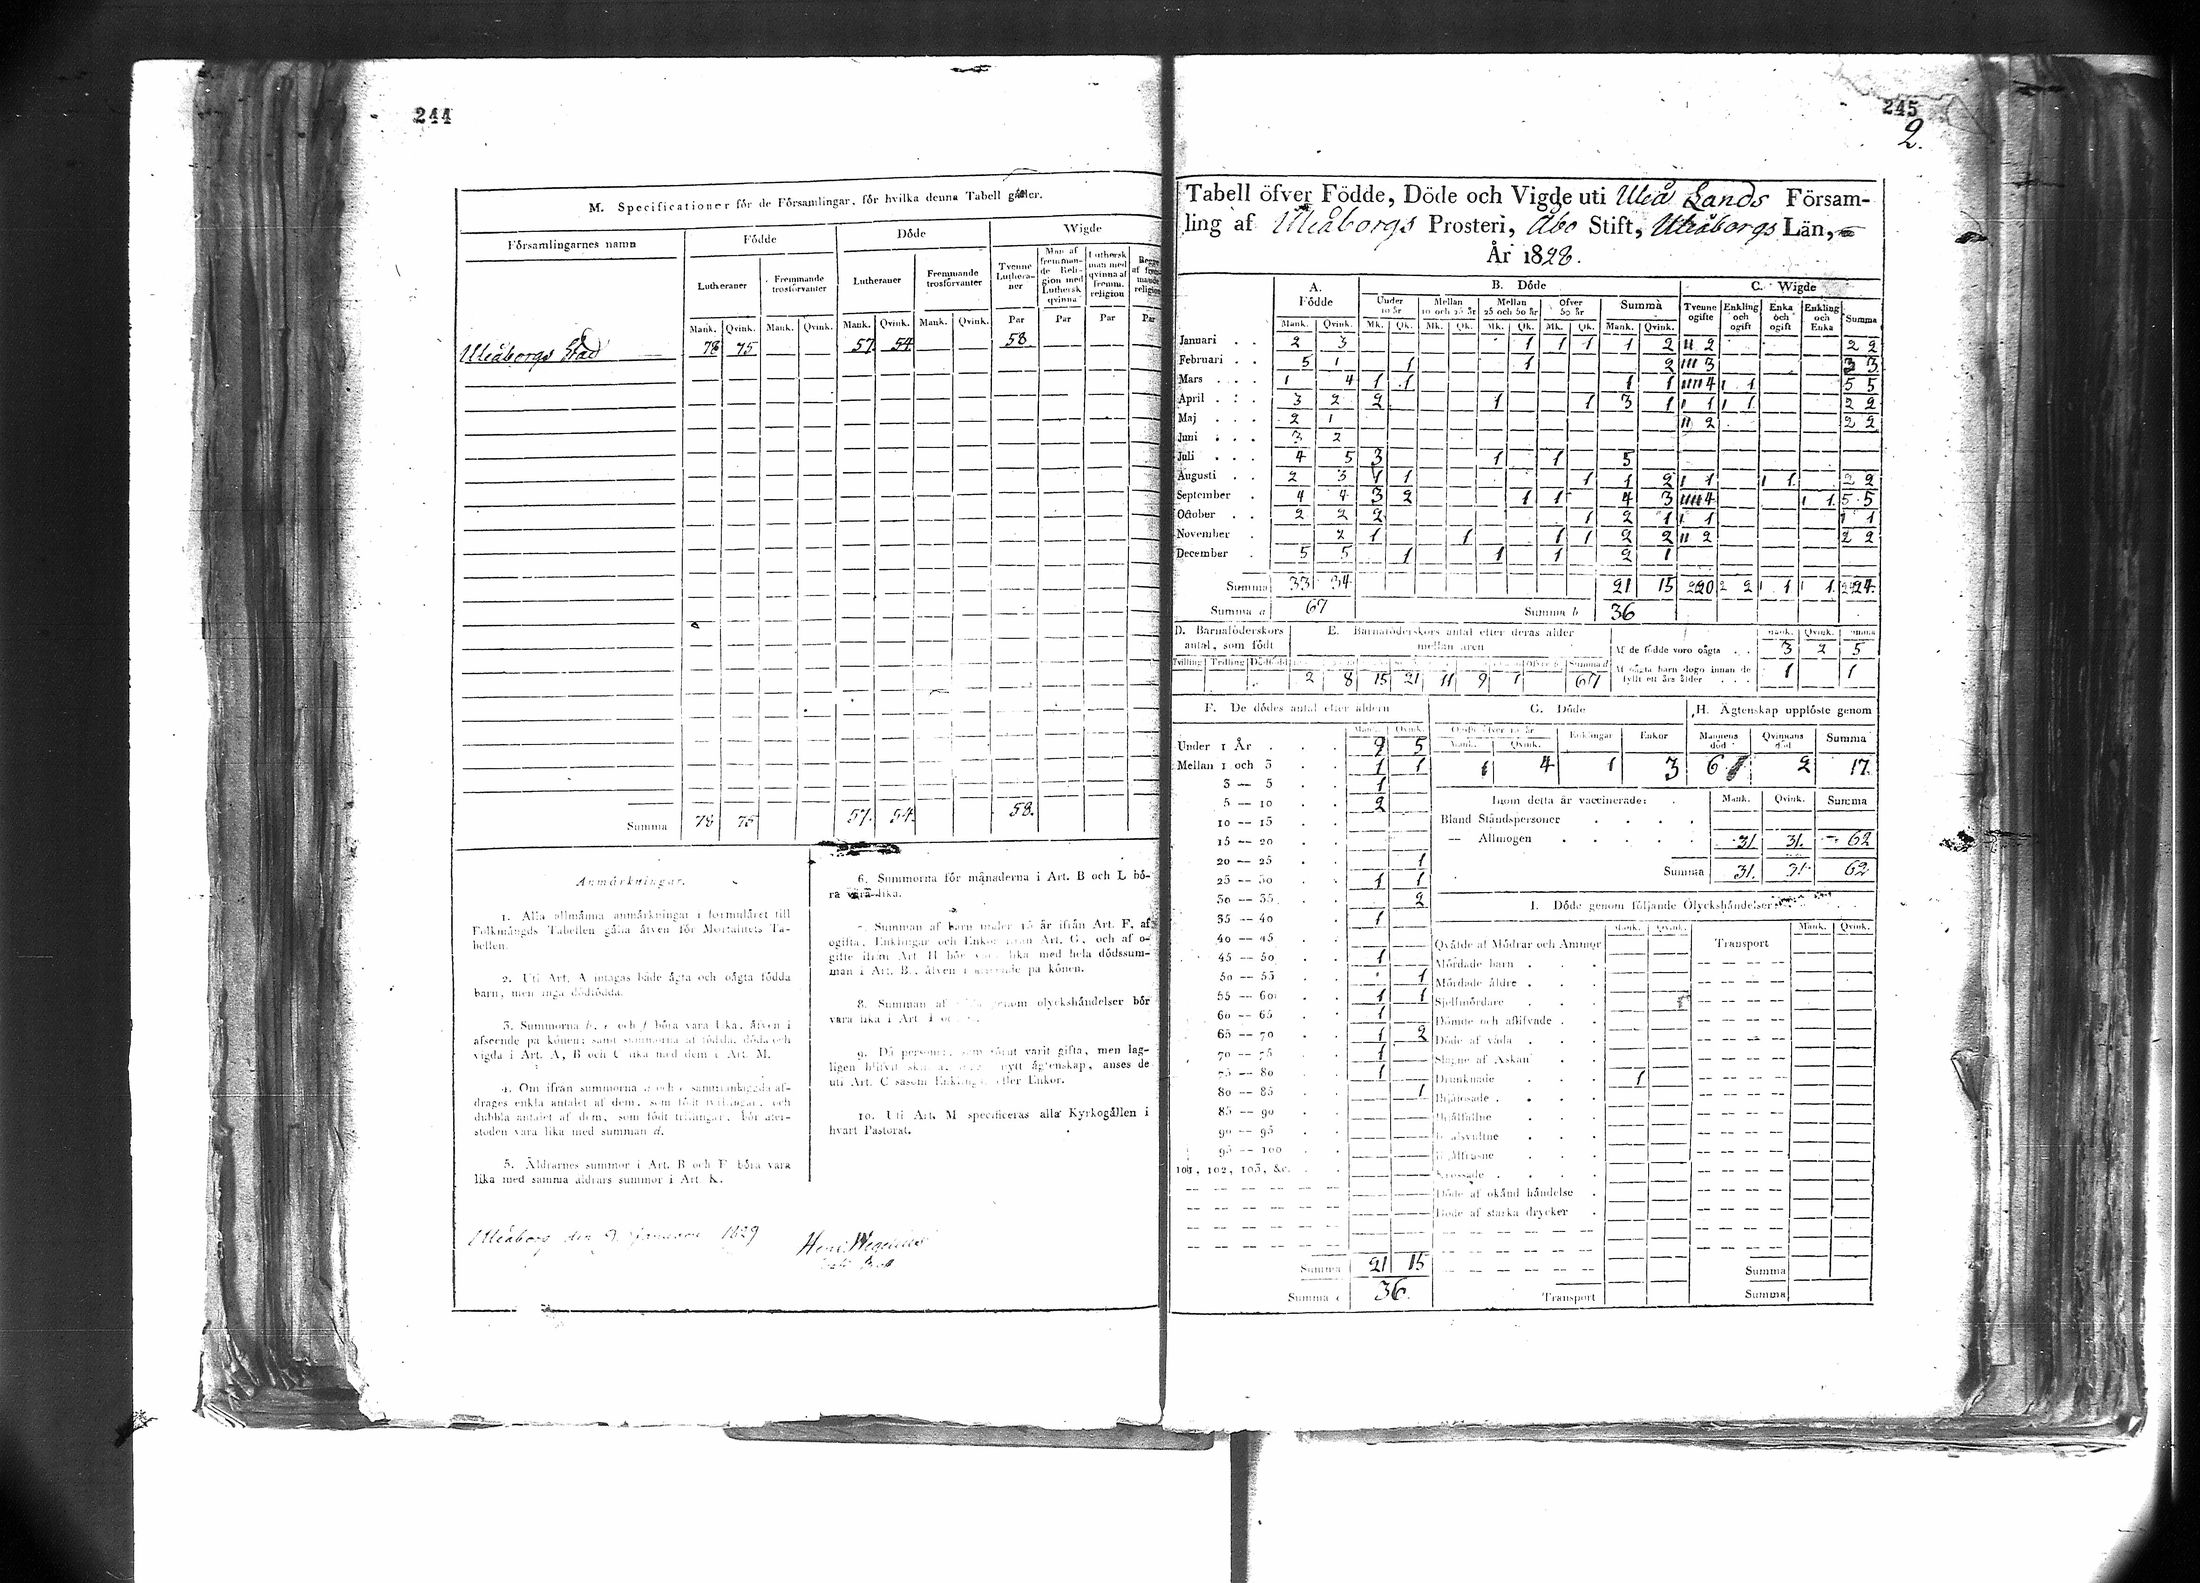 244
M. Specificationer för de Församlingar, för hvilka denna Tabell gäller.
Församlingarnes namn
Födde
Döde
Wigde
Lutheraner
Fremmande trosförvanter
Lutheraner
Fremmande trosförvanter
Tvenne Lutheraner
Man af fremmande Religion med Luthersk qvinna
Luthersk man med qvinna af fremm. religion
Mank. Qvink. Mank. Qvink. Mank. Qvink. Mank. Qvink. Par Par Par Par
Uleåborgs Stad 78 75 57 54 58
Summa 78 75 57. 54. 58.
Anmärkningar.
1. Alla allmänna anmärkningar i formuläret till
Folkmängds Tabellen gälla äfven för Mortalitets Ta-
bellen.
2. Uti Art. A intagas både ägta och oägta födda
barn, men inga dödfödda.
3. Summorna b, e och f böra vara lika, äfven i
afseende på könen; samt summorna af födda, döda och
vigda i Art. A, B och C lika med dem i Art. M.
4. Om ifrån summorna a och e sammanlagda af-
drages enkla antalet af dem, som födt tvillingar, och
dubbla antalet af dem, som födt trillingar, bör åter-
stoden vara lika med summan d.
5. Åldrarnes summor i Art. B och F böra vara
lika med samma åldrars summor i Art. K.
6. Summorna för månaderna i Art. B och L bö-
ra vara lika.
7. Summan af barn under 15 år ifrån Art. F, af
ogifta, Enklingar och Enkor ifrån Art. G, och af
gifte ifrån Art. H bör vara lika med hela dödssum-
man i Art. B, äfven i afseende på könen.
8. Summan af döda genom olyckshändelser bör
vara lika i Art. I och
9. Då personer, som förut varit gifta, men lag-
ligen blifvit nytt ägtenskap, anses de
uti Art. C såsom Enklingar eller Enkor.
10. Uti Art. M specificeras alla Kyrkogällen i
hvart Pastorat.
Uleåborg den 9 Januari 1829
245
2.
Tabell öfver Födde, Döde och Vigde uti Uleå Lands Försam-
ling af Uleåborgs Prosteri, Åbo Stift, Uleåborgs Län,
År 1828.
A. Födde
B. Döde
C. Wigde
Under 10 år
Mellan 10 och 25 år
Mellan 25 och 50 år
Öfver 50 år
Summa
Tvenne ogifte
Enkling och ogift
Enka och ogift
Enkling och Enka
Summa
Mank. Qvink. Mk. Qk. Mk. Qk. Mk. Qk. Mk. Qk. Mank. Qvink.
Januari 2 3 1 1 1 1 2 2 2 2
Februari 5 1 1 1 2 3 3 3
Mars 1 4 1 1 1 1 4 1 1 5 5
April 3 2 2 1 1 3 1 1 1 1 1 2 2
Maj 2 1 2 2 2
Juni 3 2
Juli 4 5 3 1 1 5
Augusti 2 3 1 1 1 1 2 1 1 1 1 2 2
September 4 4 3 2 1 1 4 3 4 1 1 5 5
October 2 2 2 1 2 1 1 1 1 1
November 2 1 1 1 1 2 2 2 2 2
December 5 5 1 1 1 2 1
Summa 33 34 21 15 20 2 2 1 1 1 1 24
Summa a 67
Summa b 36
D. Barnaföderskors antal, som födt
E. Barnaföderskors antal efter deras ålder mellan åren
Tvilling Trilling Dödfödd
2 8 15 21 11 9 1 67
Mank. Qvink. Summa
Af de födde voro oägta 3 2 5
Af oägta barn dogo innan de fyllt ett års ålder 1 1
F. De dödes antal efter åldern
Mank. Qvink.
Under 1 År 9 5
Mellan 1 och 3 1 1
3 — 5 1
5 — 10 2
10 — 15
15 — 20
20 — 25 1
25 — 30 1 1
30 — 35 2
35 — 40 1
40 — 45
45 — 50 1
50 — 55 1
55 — 60 1 1
60 — 65 1
65 — 70 1 2
70 — 75 1
75 — 80 1
80 — 85 1
85 — 90
90 — 95
95 — 100
101, 102, 103, &c.
Summa 21 15
Summa 36.
G. Döde
Ogifte öfver 15 år
Mank. Qvink.
Enklingar
Enkor
1 4 1 3
H. Ägtenskap upplöste genom
Mannens död
Qvinnans död
Summa
6 2 17.
Inom detta år vaccinerade: Mank. Qvink. Summa
Bland Ståndspersoner
— Allmogen 31 31. 62
Summa 31. 31 62
I. Döde genom följande Olyckshändelser
Mank. Qvink.
Transport
Mank. Qvink.
Qväfde af Mödrar och Ammor
Mördade barn
Mördade äldre
Sjelfmördare
Dömde och aflifvade
Döde af våda
Slagne af Åskan
Drunknade 1
Ihjälfrusne
Krossade
Döde af okänd händelse
Döde af starka drycker
Transport
Summa
Summa